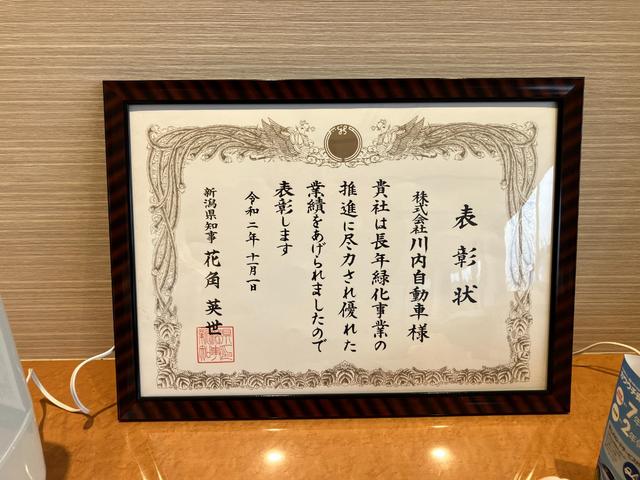 表彰状
株式会社川内自動車様
貴社は長年緑化事業の
推進に尽力され優れた
業績をあげられましたので
表彰します
令和二年十一月一日
新潟県知事 花角英世